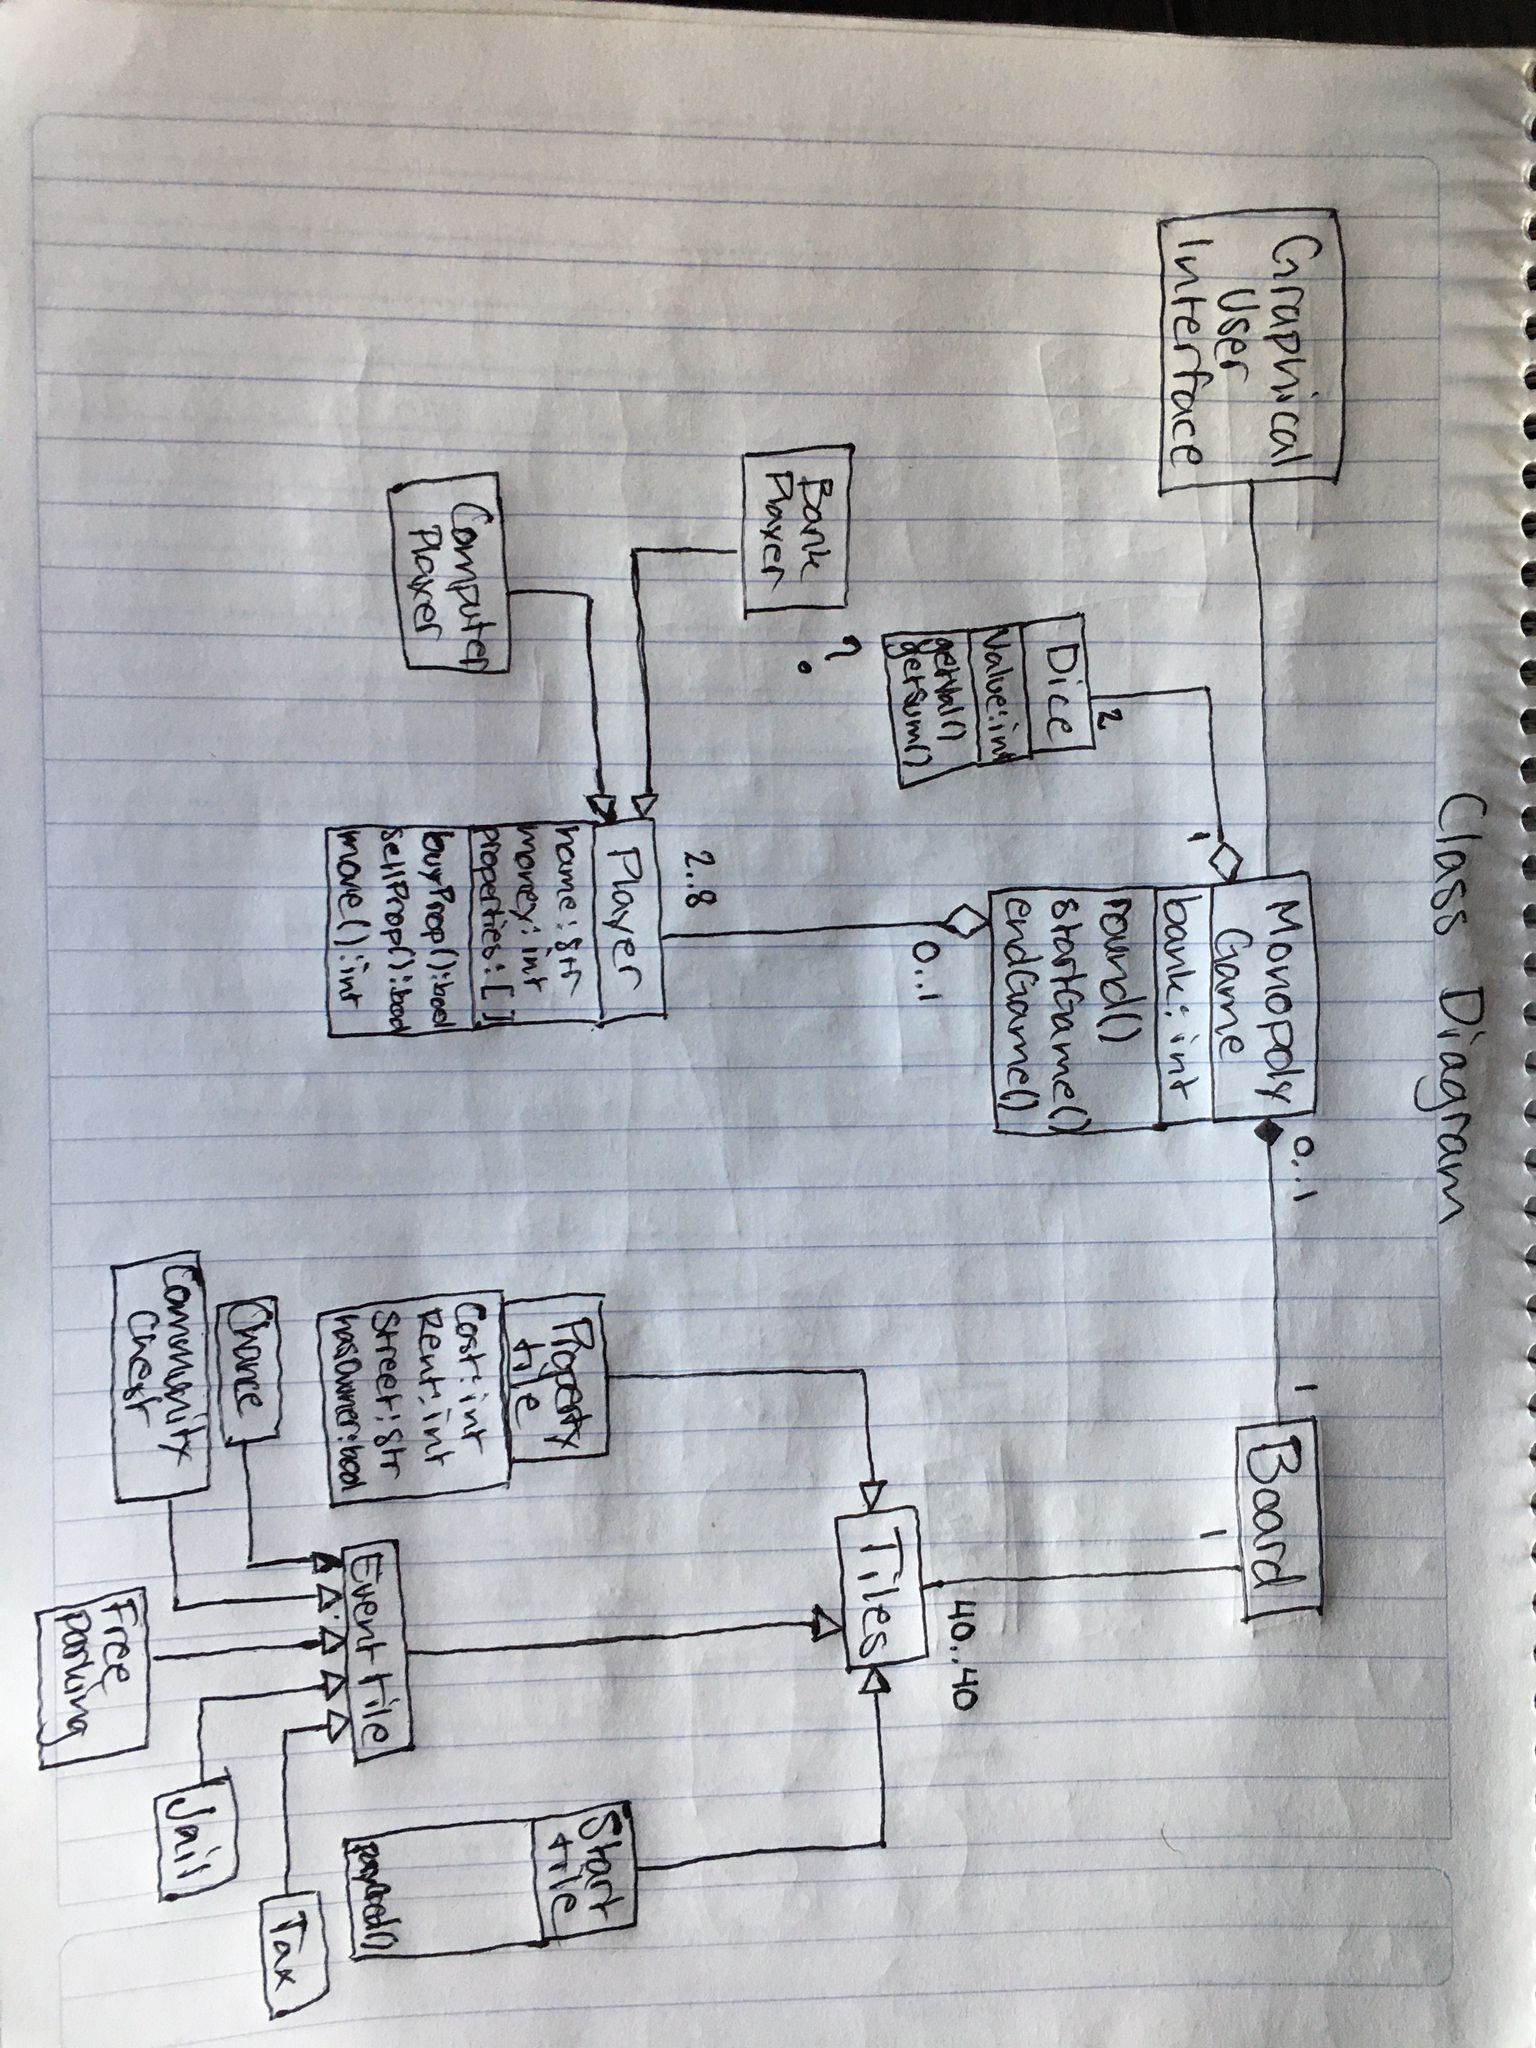 Class Diagram
Graphical
User
Interface
Monopoly
Game
bank: int
round()
startGame()
endGame()
0..1
1
Board
1
40..40
1
2
Dice
Value: int
getVal()
getSum()
Bank
Player
?
0..1
2..8
Computer
Player
Player
name: str
money: int
properties: []
buyProp(): bool
sellProp(): bool
move(): int
Tiles
Property
tile
Cost: int
Rent: int
Street: str
hasOwner: bool
Start
tile
Event tile
Chance
Community
Chest
Free
parking
Jail
Tax